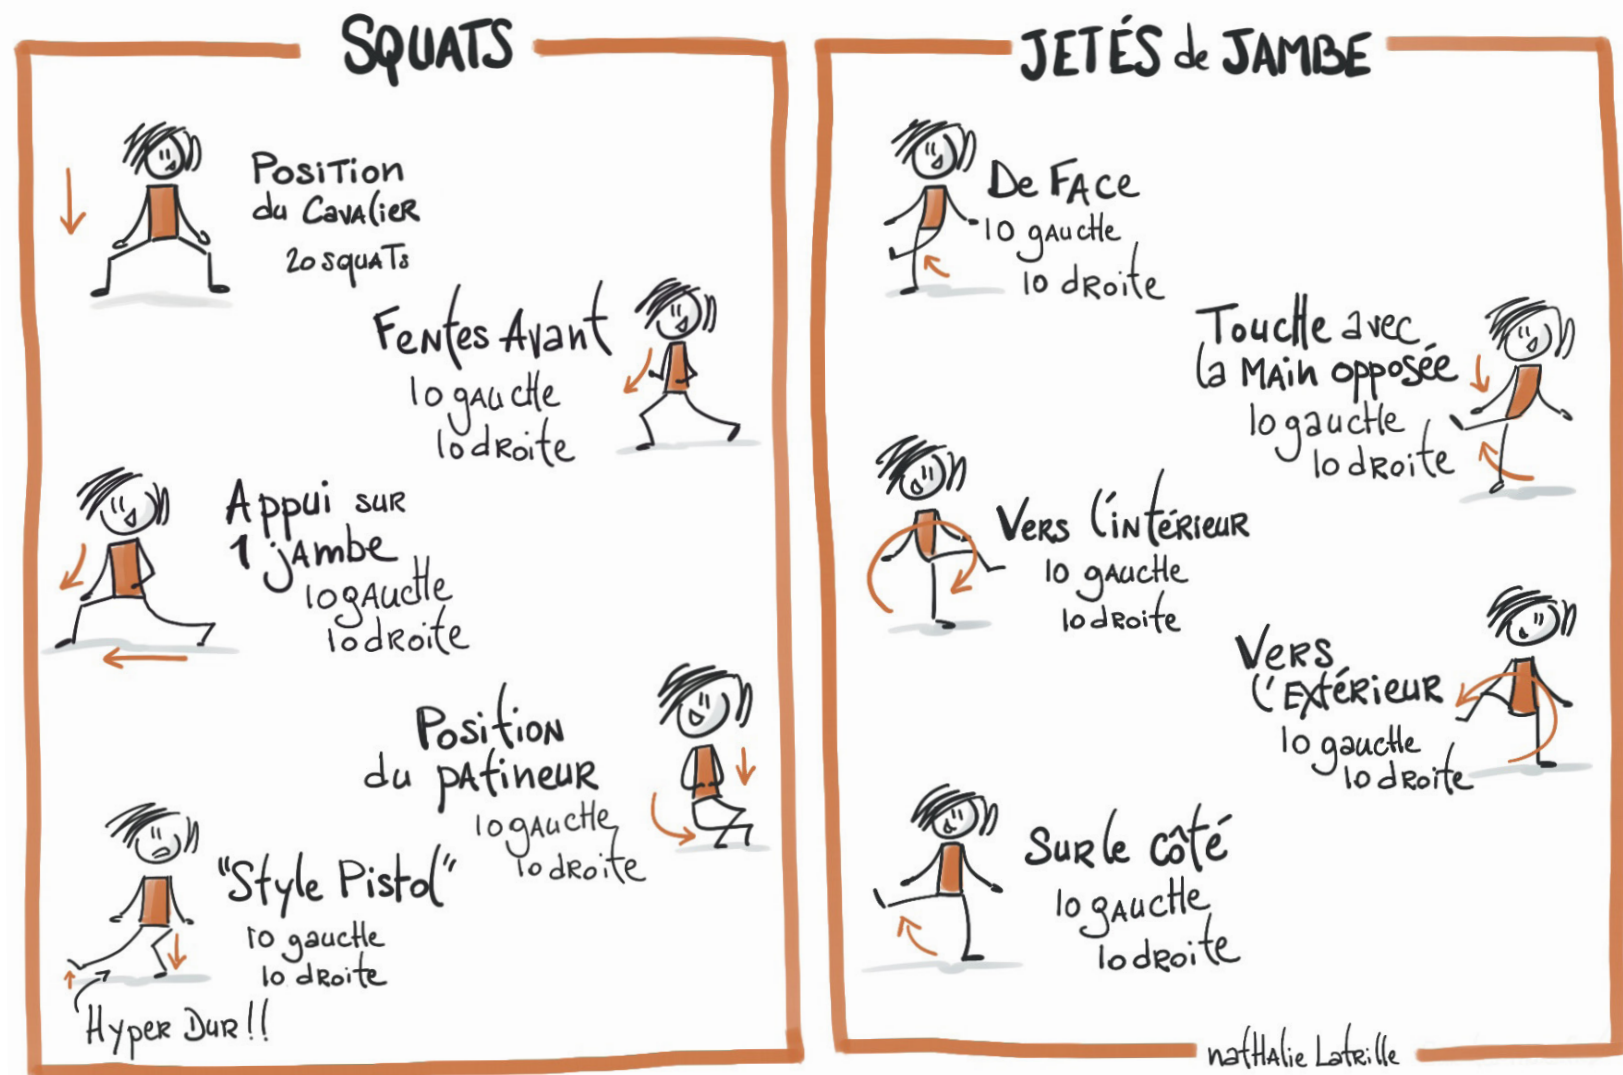 SQUATS
Position
du Cavalier
20 squats
Fentes Avant
10 gauche
10 droite
Appui sur
1 jambe
10 gauche
10 droite
Position
du patineur
10 gauche
10 droite
"Style Pistol"
10 gauche
10 droite
Hyper Dur!!
JETÉS de JAMBE
De Face
10 gauche
10 droite
Touche avec
la main opposée
10 gauche
10 droite
Vers l'intérieur
10 gauche
10 droite
Vers
l'extérieur
10 gauche
10 droite
Sur le côté
10 gauche
10 droite
nathalie Latrille